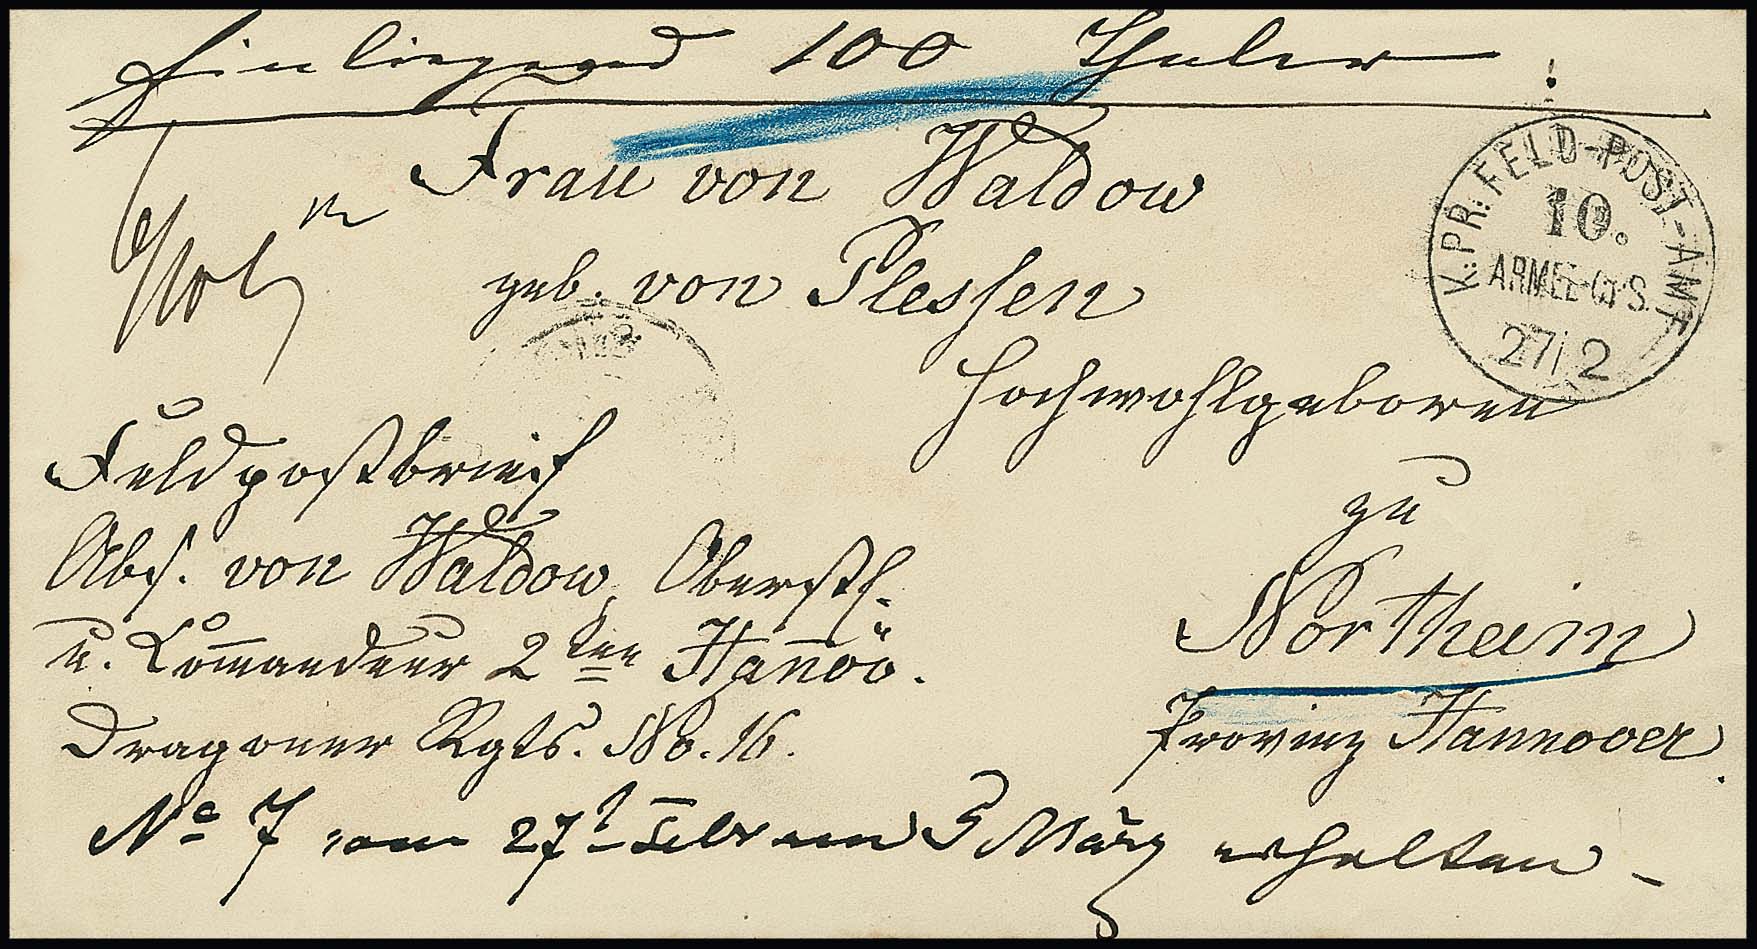 Einliegend 100 Thaler.
Frau von Waldow
geb. von Plessen
Hochwohlgeboren
zu
Northeim
Provinz Hannover.
K. PR. FELD-POST-AMT
10.
ARMEE-CPS.
27 2
Feldpostbrief
Abs. von Waldow, Oberstl.
u. Kommandeur 2ten Hannöv.
Dragoner Rgts. No. 16.
No 7 vom 27t Febr am 3 März erhalten